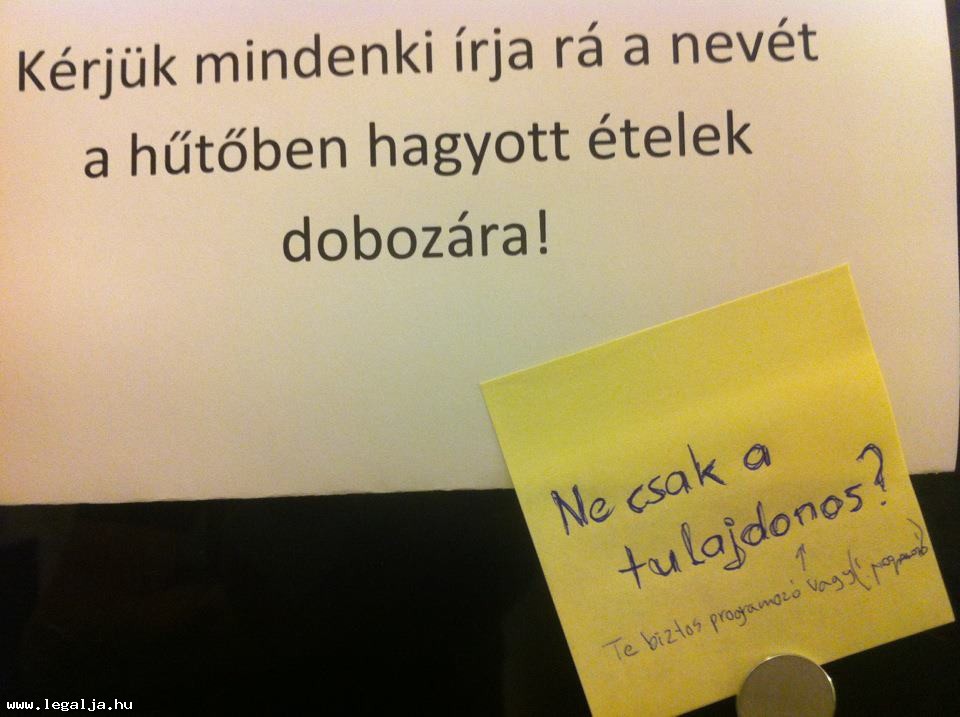 Kérjük mindenki írja rá a nevét
a hűtőben hagyott ételek
dobozára!
Ne csak a
tulajdonos?
Te biztos programozó vagy
www.legalja.hu